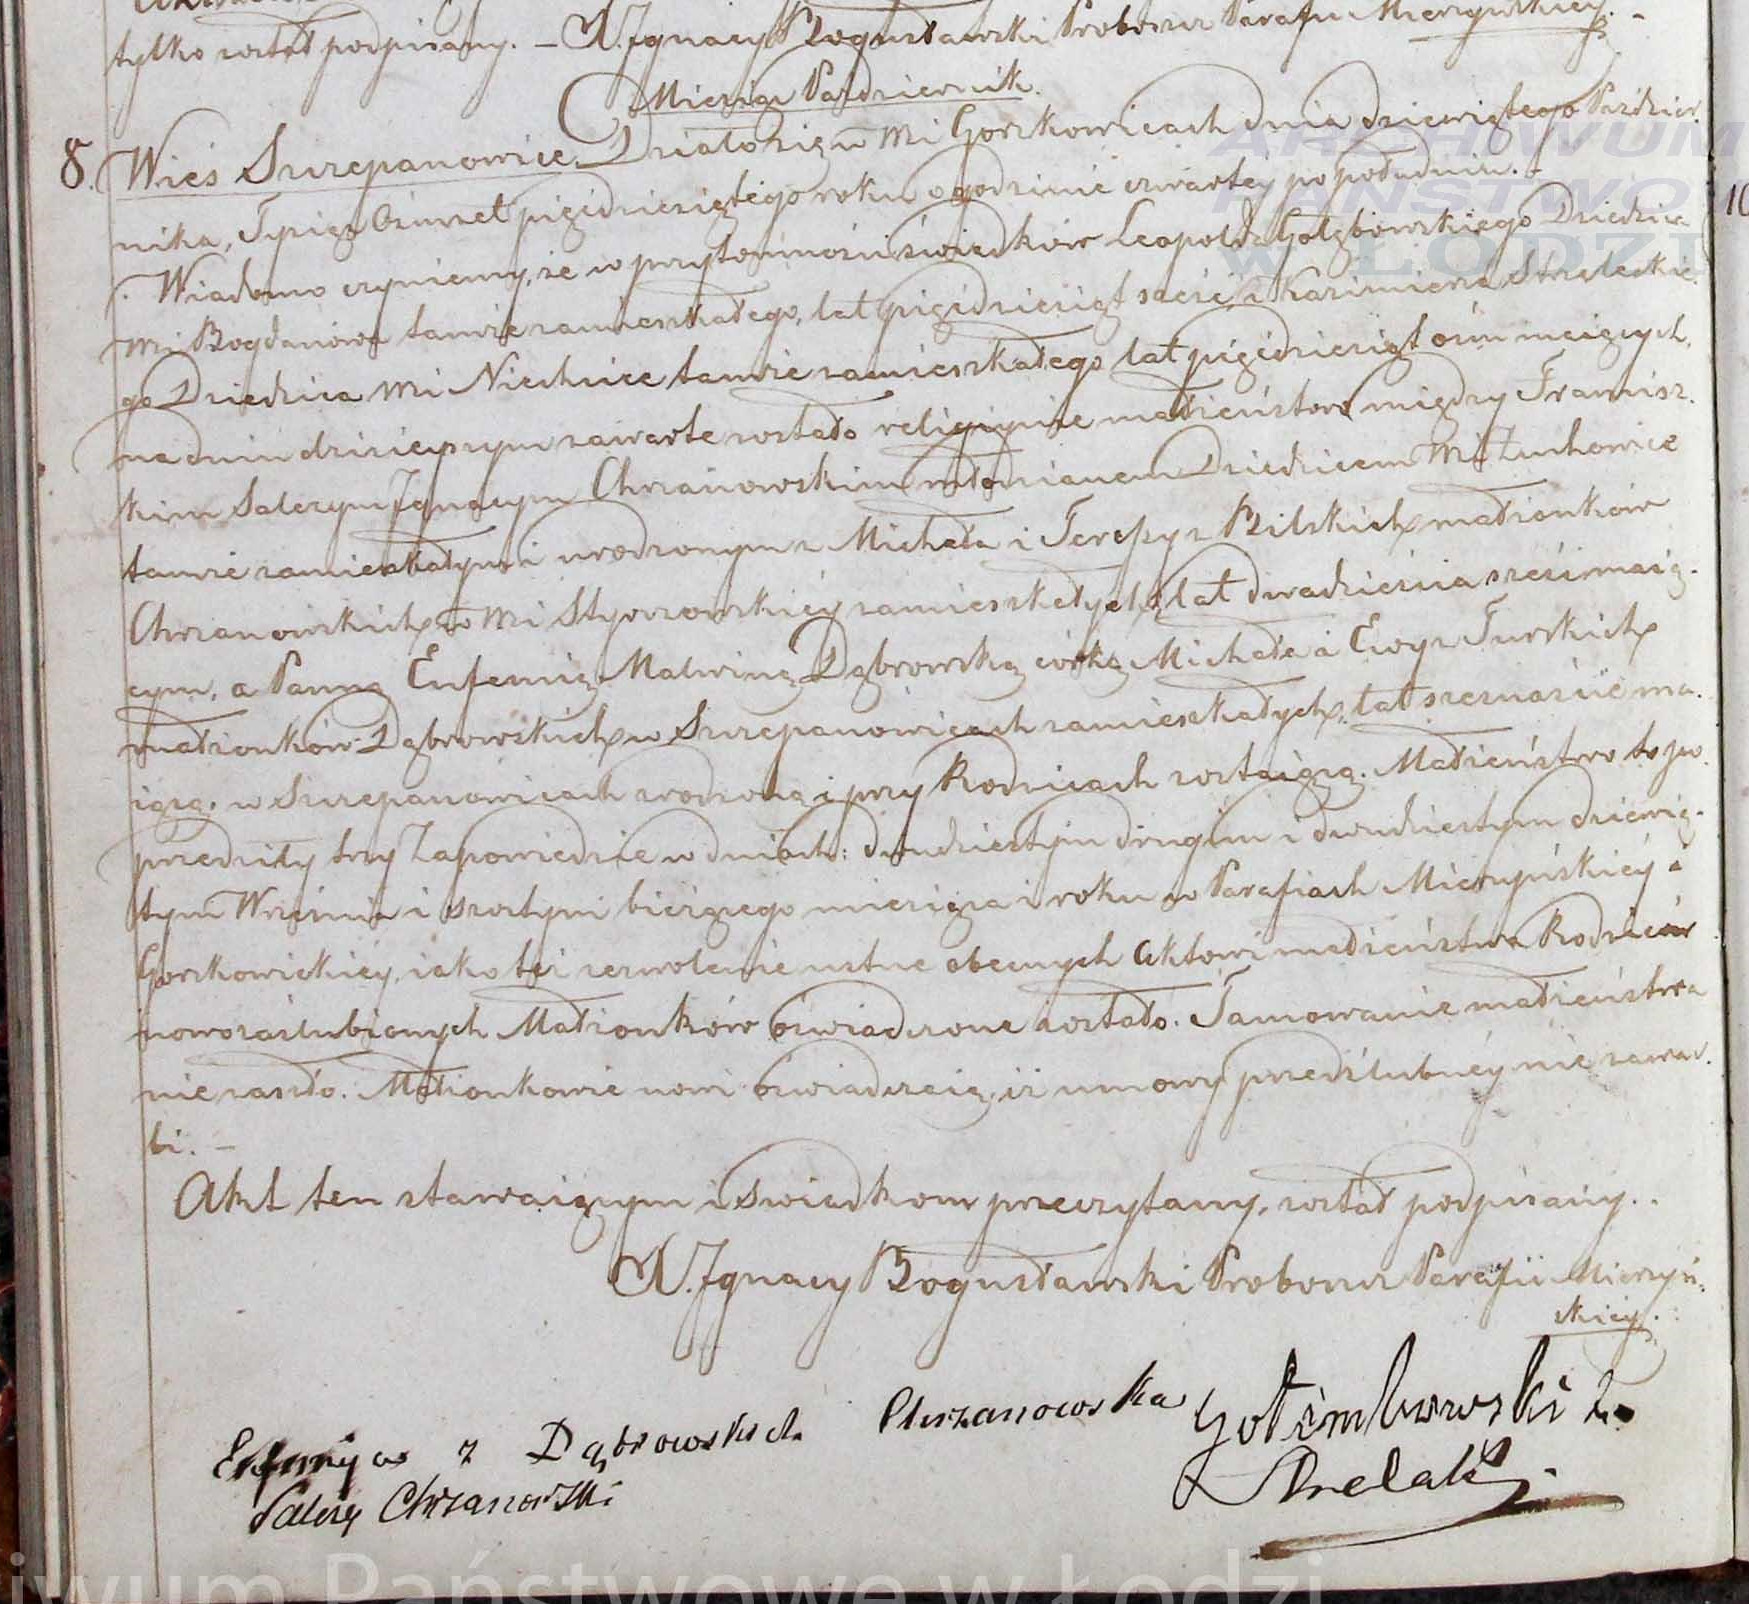 tylko został podpisany. – X. Ignacy Bogusławski Proboszcz Parafii Mierzyńskiey. -
Miesiąc Pazdziernik.
8. Wieś Szczepanowice. Działo się w Wsi Gorzkowicach dnia dziewiątego Paździer.
nika, Tysiąc Osmset pięćdziesiątego roku o godzinie czwartey po południu. -
Wiadomo czyniemy, że w przytomności świadków Leopolda Gołębowskiego Dziedzica
Wsi Bogdanowa tamże zamieszkałego, lat pięćdziesiąt sześć i Kazimierza Strzeleckie.
go Dziedzica Wsi Niechcice tamże zamieszkałego lat pięćdziesiąt ośm maiących,
na dniu dzisieyszym zawarte zostało religiyne małżeństwo między Francisz.
kiem Salezym Ignacym Chrzanowskim młodzianem Dziedzicem Wsi Żuchowice
tamże zamieszkałym i urodzonym z Michała i Teressy z Bilskich małżonków
Chrzanowskich w Wsi zamieszkałych, lat dwadzieścia sześć maią.
cym, a Panną Eufemią Malwiną Dąbrowską córką Michała i Ewy z Turskich
małżonków Dąbrowskich w Szczepanowicach zamieszkałych, lat szesnaście ma.
iącą, w Szczepanowicach zrodzoną i przy Rodzicach zostaiącą. Małżeństwo to po.
przedziły trzy Zapowiedzie w dniach: dwudziestym drugim i dwudziestym dziewią.
tym Września i szostym bieżącego miesiąca i roku w Parafiach Mierzyńskiéy i
Gorzkowickiéy, iako też zezwolenie ustne obecnych Aktowi małżeństwa Rodziców
nowozaślubionych Małżonków oświadczone zostało. Tamowanie małżeństwa
nie zaszło. Małżonkowie nowi oświadczaią, iż umowy przedślubnéy nie zawar.
li. –
Akt ten stawaiącym i Swiadkom przeczytany, został podpisany. .
X. Ignacy Bogusławski Proboszcz Parafii Mierzyń.
skiey.
Eufemija z Dąbrowskich Chrzanowska Gołembowski L.
Salezy Chrzanowski Strzelecki
ARCHIWUM
PAŃSTWO
W ŁODZI
10
iwum Państwowe w Łodzi